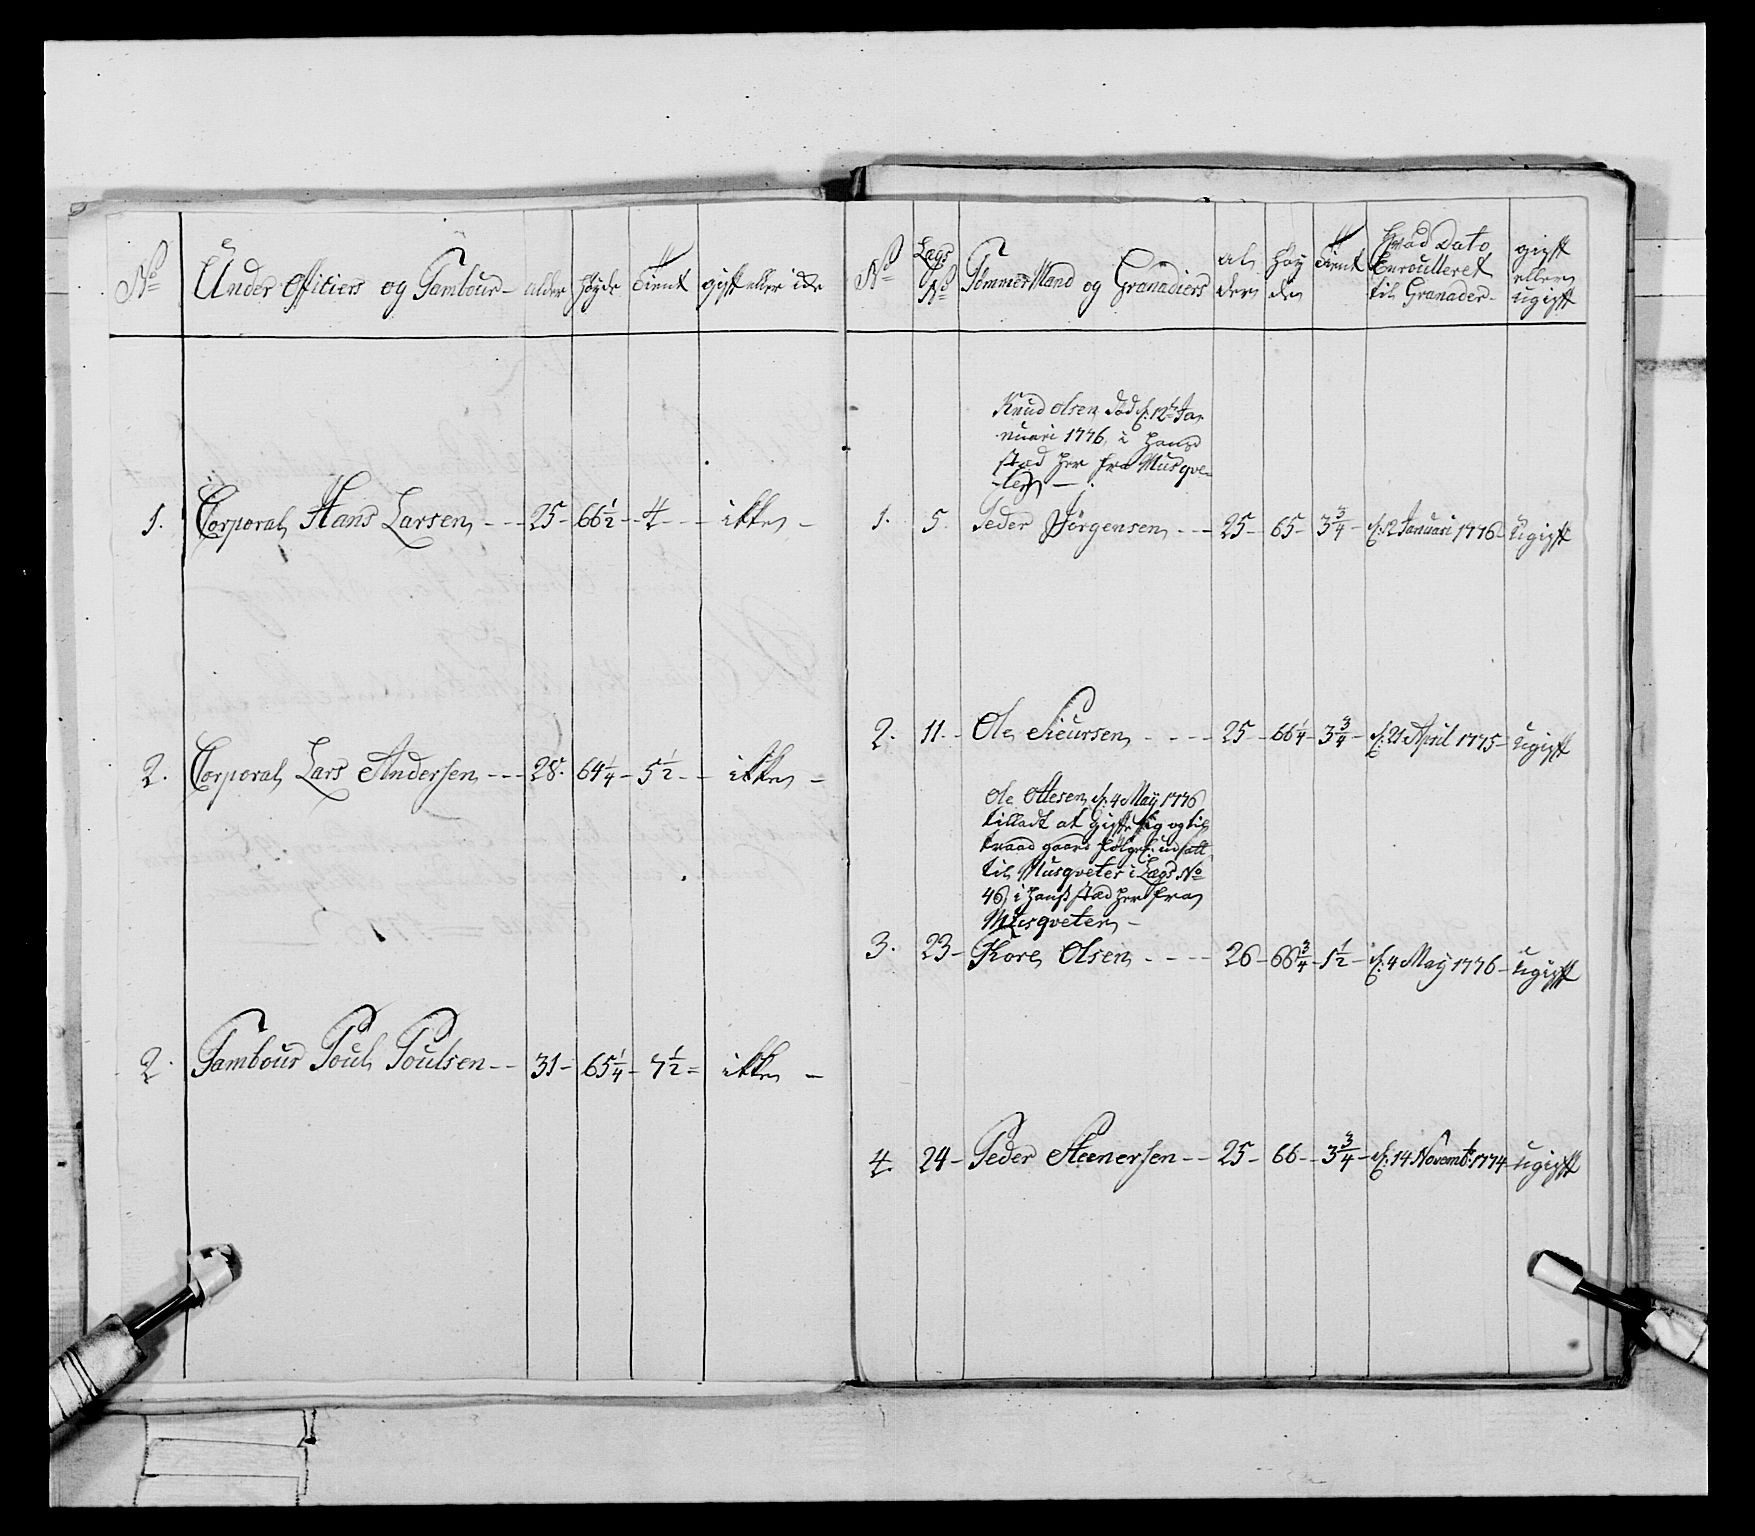 No Under Officiers og Tambour alder høyde tient gift eller icke
1. Corporal Hans Larsen 25 66 1/2 4 ikke
2. Corporal Lars Andersen 28 64 1/4 5 1/2 ikke
2. Tambour Poul Poulsen 31 65 1/4 7 1/2 ikke
No Lægs No Tømmer Mand og Granadiers alderen høyden tient hvad Dato Enroulleret til Granader gift eller ugift
Knud Olsen død d: 12te Ja-
nuari 1776, i hans
stæd her fra Musqve-
teer
1. 5. Peder Jørgensen 25 65 3 3/4 d: 12 Januari 1776 ugift
2. 11. Ole Sieursen 25 66 1/4 3 3/4 d: 21 April 1775 ugift
Ole Ottesen d: 4 Maij 1776
tilladt at gifte sig og til
traad gaard følgel: udsatt
til Musqveter i Lægs No
46, i hans stæd her fra
Musqveter
3. 23 Kore Olsen 26 66 3/4 1 1/2 d: 4 Maij 1776 ugift
4. 24 Peder Steenersen 25 66 3 3/4 d: 14 Novembr: 1774 ugift